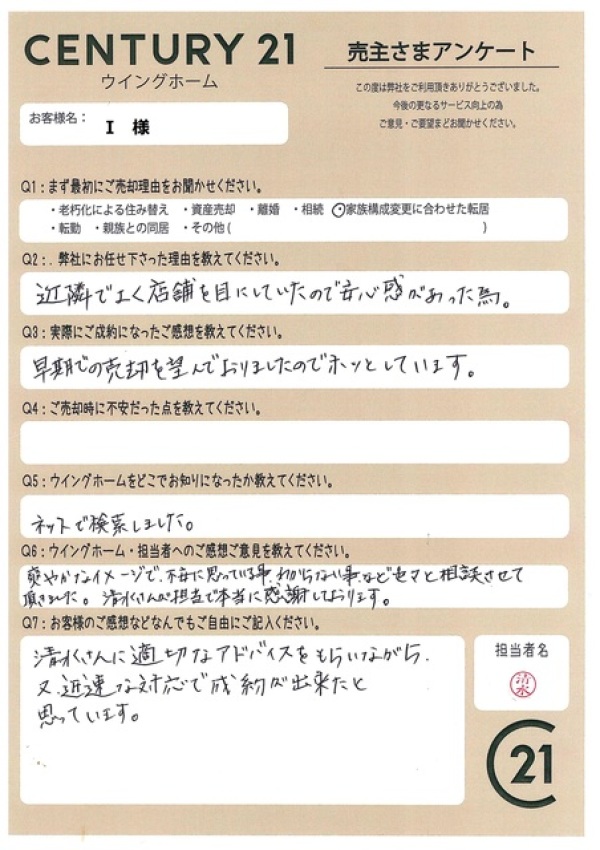 CENTURY 21
ウイングホーム
売主さまアンケート
この度は弊社をご利用頂きありがとうございました。
今後の更なるサービス向上の為
ご意見・ご要望をお聞かせください。
お客様名：
I 様
Q1：まず最初にご売却理由をお聞かせください。
・老朽化による住み替え ・資産売却 ・離婚 ・相続 ・家族構成変更に合わせた転居
・転勤 ・親族との同居 ・その他( )
Q2：. 弊社にお任せ下さった理由を教えてください。
近隣でよく店舗を目にしていたので安心感があった為。
Q3：実際にご成約になったご感想を教えてください。
早期での売却を望んでおりましたのでホッとしています。
Q4：ご売却時に不安だった点を教えてください。
Q5：ウイングホームをどこでお知りになったか教えてください。
ネットで検索しました。
Q6：ウイングホーム・担当者へのご感想ご意見を教えてください。
爽やかなイメージで、不安に思っている事、わからない事など色々と相談させて
頂きました。清水さんが担当で本当に感謝しております。
Q7：お客様のご感想などなんでもご自由にご記入ください。
清水さんに適切なアドバイスをもらいながら、
又、迅速な対応で成約が出来たと
思っています。
担当者名
清水
21